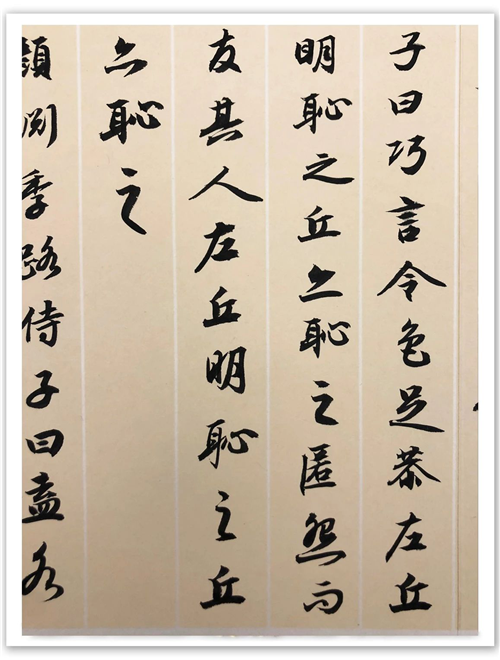 子曰巧言令色足恭左丘
明恥之丘亦恥之匿怨而
友其人左丘明恥之丘
亦恥之
顏淵季路侍子曰盍各